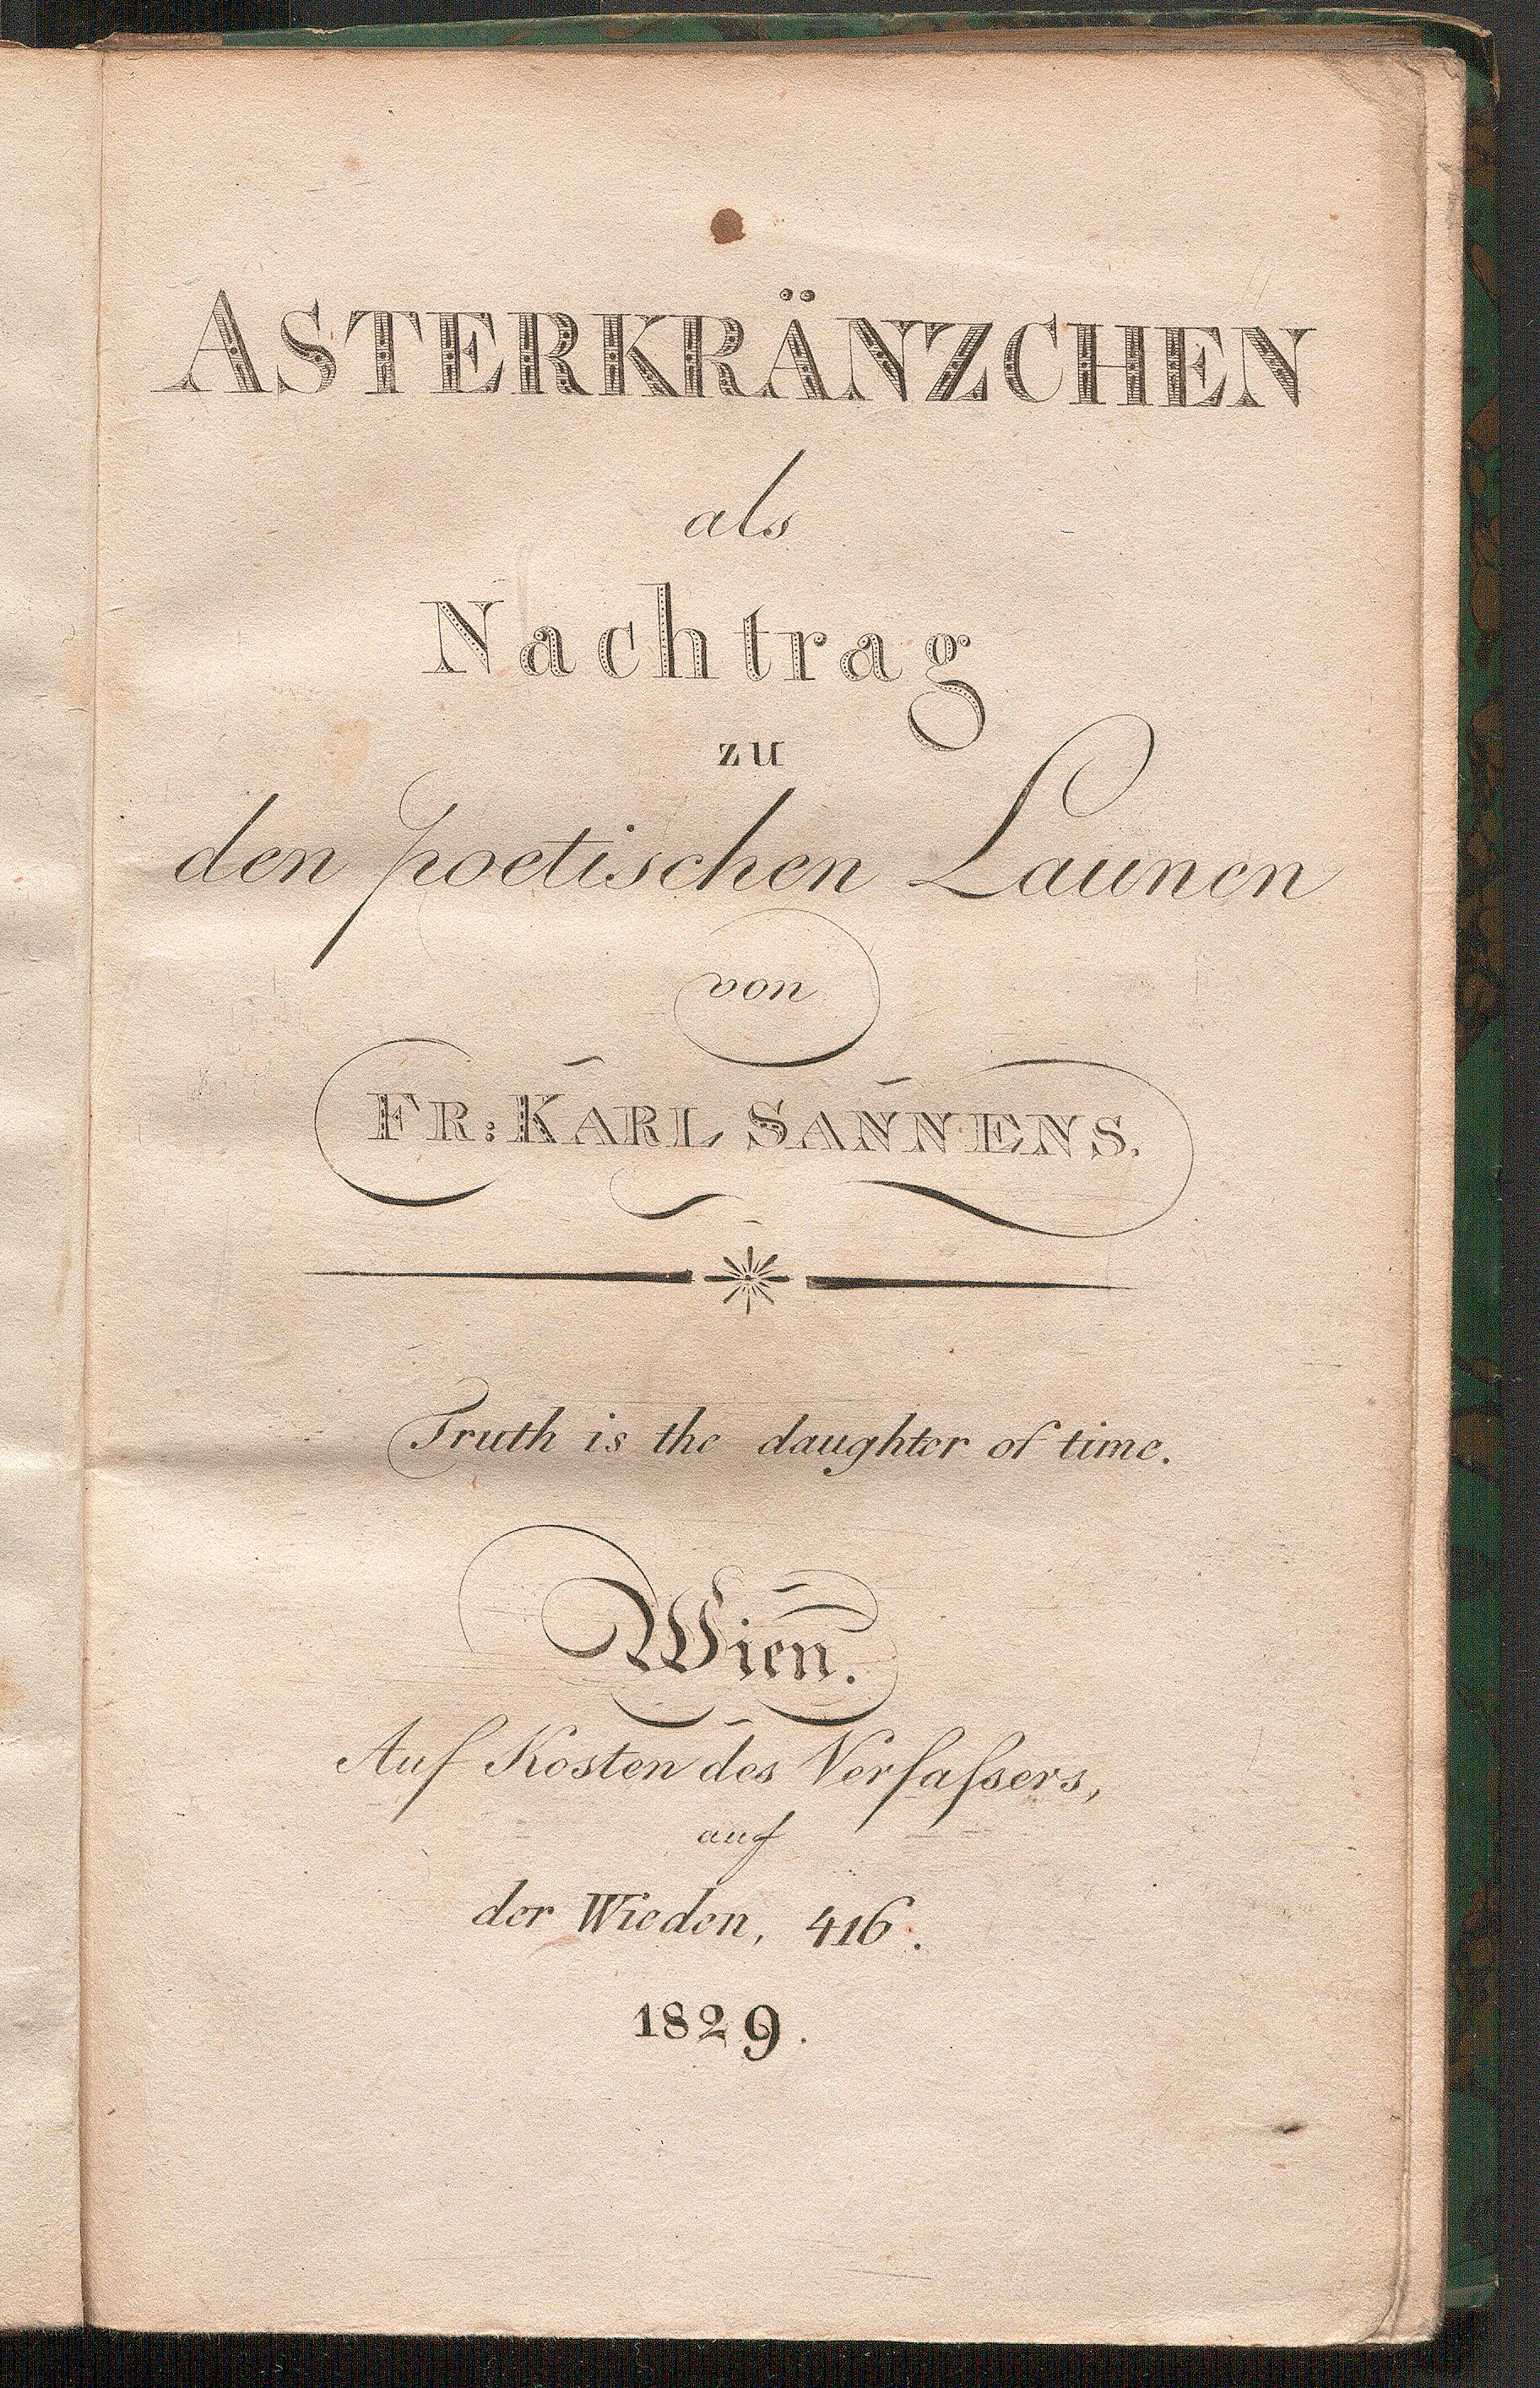 ASTERKRÄNZCHEN
als
Nachtrag
zu
den poetischen Launen
von
FR: KARL SANNENS.
Truth is the daughter of time.
Wien.
Auf Kosten des Verfaſsers,
auf
der Wieden, 416.
1829.